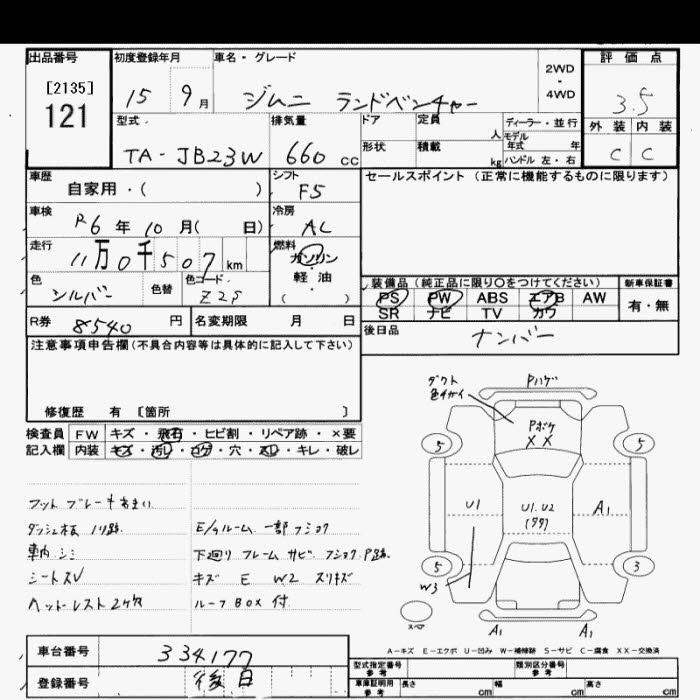 出品番号 初度登録年月 車名・グレード 2WD・4WD 評価点
[2135]
121 15 9月 ジムニ ランドベンチャー 3.5
型式 排気量 ドア 定員 人 ディーラー・並行 外装 内装
モデル年式 年
TA-JB23W 660cc 形状 積載 kg ハンドル 左・右 C C
車歴 自家用・( ) シフト F5 セールスポイント(正常に機能するものに限ります)
車検 R6年10月( 日) 冷房 AC
走行 11万0千507km 燃料 ガソリン・軽油( )
色 シルバー 色替 色コード Z2S
装備品(純正品に限り○をつけてください) 新車保証書
PS PW ABS エアB AW 有・無
SR ナビ TV カワ
R券 8540円 名変期限 月 日 後日品 ナンバー
注意事項申告欄(不具合内容等は具体的に記入して下さい)
修復歴 有 [箇所 ]
検査員 FW キズ・飛石・ヒビ割・リペア跡・×要
記入欄 内装 キズ・汚レ・コゲ・穴・スレ・キレ・破レ
ダクト
色チガイ
Pハゲ
Pボケ
XX
5 5
U1 U1.U2 A1
5 3
W3
スペア A1 A1
フットブレーキあまい
ダッシュ板 ノリ跡 E/gルーム 一部フショク
車内 シミ 下廻り フレーム サビ フショク P跡.
シートスレ キズ E W2 スリキズ
ヘッドレスト2ケ欠 ルーフBOX付
A-キズ E-エクボ U-凹み W-補修跡 S-サビ C-腐食 XX-交換済
車台番号 334177
登録番号 後日
型式指定番号 参考 類別区分番号 参考
車庫証明用 参考 長さ cm 幅 cm 高さ cm